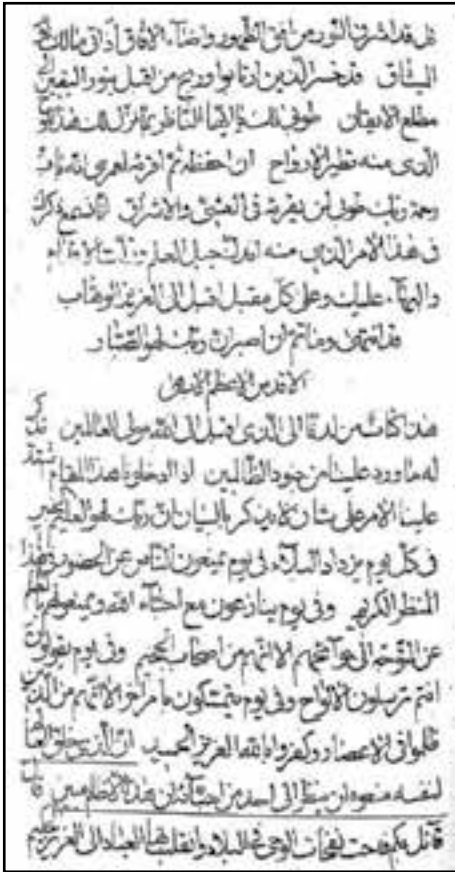 قل قد اشرق النور من افق الظهور واضاء الآفاق اذ اتى مالك يوم
الميثاق قد خسر الذين ارتابوا وربح من اقبل بنور اليقين الى
مطلع الايقان طوبى لك يا ايها الناظر بما نزل لك هذا اللوح
الذى منه تطير الارواح ان احفظه ثم اقرئه لعمرى انه باب
رحمة ربك طوبى لمن يقرئه فى العشى والاشراق انا نسمع ذكرك
فى هذا الامر الذى منه اندك جبل العلم وزلت الاقدام
والبهاء عليك وعلى كل مقبل اقبل الى العزيز الوهاب
قد انتهى وما تم ان اصبر ان ربك لهو الصبار
الاقدس الاعظم الابهى
هذا كتاب من لدنا الى الذى اقبل الى الله مولى العالمين لنذكر
له ما ورد علينا من جنود الظالمين اذ ادخلونا هذا المقام اشتد
علينا الامر على شأن لا يذكر بالبيان ان ربك لهو العليم الخبير
فى كل يوم يزداد البلاء فى يوم يمنعون الناس عن الحضور فى هذا
المنظر الكريم وفى يوم ينازعون مع احباء الله ويمنعونهم
عن التوجه الى مواقعهم الا انهم من اصحاب الجحيم وفى يوم يقولون
انتم ترسلون الالواح وفى يوم يتمسكون بامر آخر الا انهم من الذين
ظلموا فى الاعصار وكفروا بالله العزيز الحميد ان الذى خلق العالم
لنفسه منعوه ان ينظر الى احد من احبائه ان هذا الا ظلم مبين
قل بكم فاحت نفحات الوحى فى البلاد وانقلب بها العباد الى العزيز